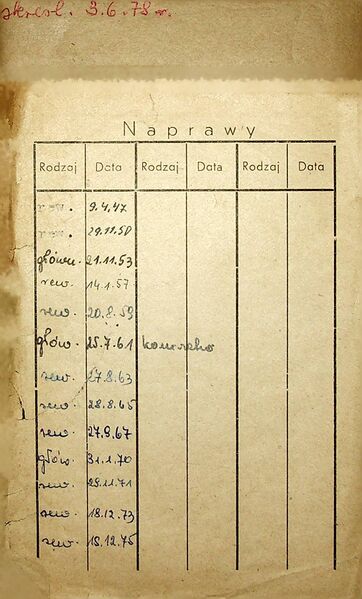 skreśl. 3.6.78 r.
Naprawy
Rodzaj Data Rodzaj Data Rodzaj Data
rew. 9.4.47
rew. 29.11.50
główn. 21.11.53
rew. 14.1.57
rew. 20.8.59
głów. 25.7.61
rew. 27.8.63
rew. 28.8.65
rew. 27.9.67
głów. 31.1.70
rew. 29.11.71
rew. 18.12.73
rew. 15.12.75